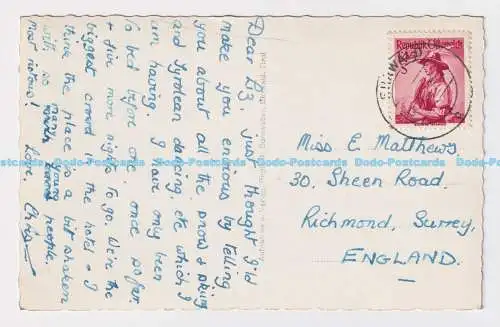 Dear Liz, Just thought I'd
make you envious by telling
you about all the snow & skiing
and Tyrolean dancing, etc which I
am having. I have only been
to bed before one once so far
& five more nights to go. We're the
biggest crowd in the hotel & I
think the place is a bit shaken
with so many people.
most riotous!
Love Chris
Republik Österreich
Miss E. Matthews,
30. Sheen Road.
Richmond, Surrey,
ENGLAND.
Dodo-Postcards Dodo-Postcards Dodo-Postcards Dodo-Postcards